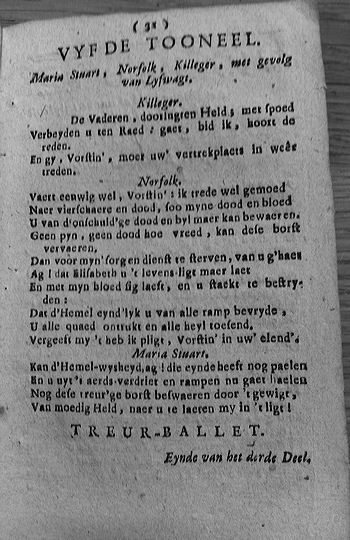 ( 31 )
VYFDE TOONEEL.
Maria Stuart, Norfolk, Killeger, met gevolg
van Lyfwagt.
Killeger.
De Vaderen, doorlugten Held; met spoed
Verbeyden u ten Raed: gaet, bid ik, hoort de
reden.
En gy, Vorstin', moet uw' vertrekplaets in weêr
treden.
Norfolk.
Vaert eeuwig wel, Vorstin': ik trede wel gemoed
Naer vierschaere en dood, soo myne dood en bloed
U van d'onschuld'ge dood en byl maer kan bewaeren.
Geen pyn, geen dood hoe vreed, kan dese borst
vervaeren,
Dan voor myn' sorg en dienst te sterven, van u g'haet
Ag! dat Elisabeth u 't levens-ligt maer laet
En met myn bloed sig laeft, en u staekt te bestry-
den:
Dat d'Hemel eynd'lyk u van alle ramp bevryde,
U alle quaed ontrukt en alle heyl toesend.
Vergeeft my 't heb ik pligt, Vorstin' in uw' elend'.
Maria Stuart.
Kan d'Hemel-wysheyd, ag! die eynde heeft nog paelen
En u uyt 't aerds-verdriet en rampen nu gaet haelen
Nog dese treur'ge borst beswaeren door 't gewigt,
Van moedig Held, naer u te laeten my in 't ligt!
TREUR-BALLET.
Eynde van het derde Deel.